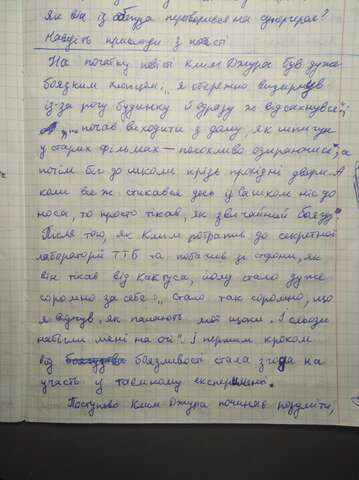 Як він із боягуза перетворився на супергероя?
Наведіть приклади з повісті
На початку повісті Клим Джура був дуже
боязким хлопцем: „я обережно визирнув
із-за рогу будинку й одразу ж відсахнувся";
„почав виходити з дому, як шпигун
у старих фільмах – полохливо озираючись", а
потім біг до школи крізь прохідні двори. А
коли все ж стикався десь із Вашком ніс до
носа, то просто тікав, як звичайний боягуз.
Після того, як Клим потрапив до секретної
лабораторії ТТБ та побачив зі сторони, як
він тікав від Кактуса, йому стало дуже
соромно за себе: „Стало так соромно, що
я відчув, як палають мої щоки. І сльози
набігли мені на очі". І першим кроком
від боязливості стала згода на
участь у таємному експерименті.
Поступово Клим Джура починає розуміти,